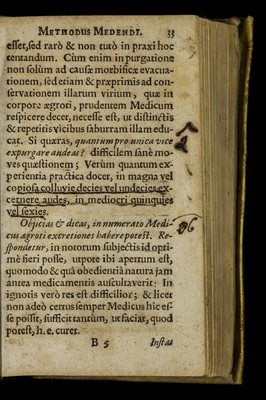 METHODUS MEDENDI. 33
esset, sed rarò & non tutò in praxi hoc
tentandum. Cùm enim in purgatione
non solùm ad causæ morbificæ evacua-
tionem, sed etiam & præprimis ad con-
servationem illarum virium, quæ in
corpore ægroti, prudentem Medicum
respicere decet, necesse est, ut distinctis
& repetitis vicibus saburram illam edu-
cat. Si quæras, quantum pro unica vice
expurgare audeas? difficilem sanè mo-
ves quæstionem; Verùm quantum ex-
perientia practica docet, in magna vel
copiosa colluvie decies vel undecies ex-
cernere audes, in mediocri quinquies
vel sexies.
Objicias & dicas, in numerato Medi-
cus ægroti excretiones habere potest. Re-
spondetur, in notorum subjectis id opti-
mè fieri posse, utpote ibi apertum est,
quomodo & quâ obedienciâ natura jam
antea medicamentis auscultaverit: In
ignotis verò res est difficilior; & licet
non adeò certus semper Medicus hîc es-
se possit, sufficit tantùm, ut faciat, quod
potest, h. e. curet.
B 5 Instas